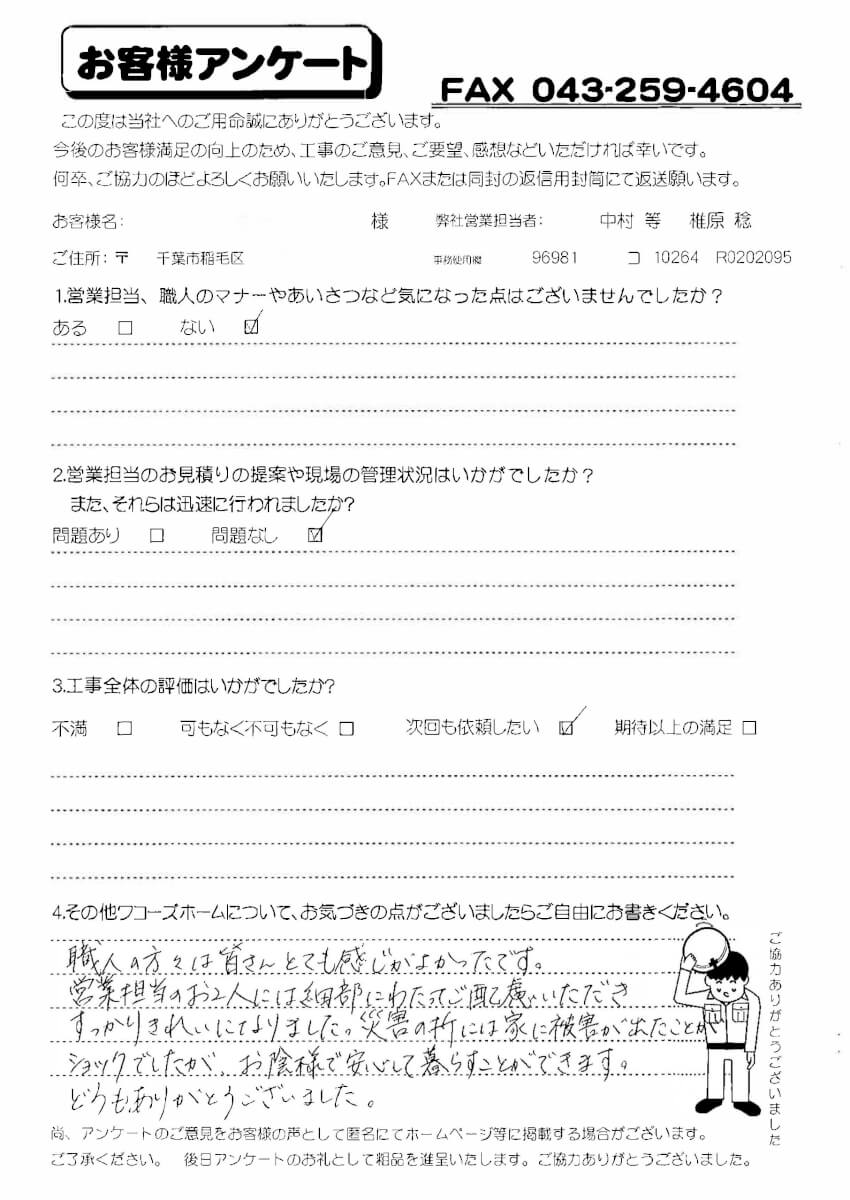 お客様アンケート
FAX 043-259-4604
この度は当社へのご用命誠にありがとうございます。
今後のお客様満足の向上のため、工事のご意見、ご要望、感想などいただければ幸いです。
何卒、ご協力のほどよろしくお願いいたします。FAXまたは同封の返信用封筒にて返送願います。
お客様名: 様 弊社営業担当者: 中村 等 椎原 稔
ご住所:〒 千葉市稲毛区 事務使用欄 96981 コ 10264 R0202095
1.営業担当、職人のマナーやあいさつなど気になった点はございませんでしたか?
ある □ ない ☑
2.営業担当のお見積りの提案や現場の管理状況はいかがでしたか?
また、それらは迅速に行われましたか?
問題あり □ 問題なし ☑
3.工事全体の評価はいかがでしたか?
不満 □ 可もなく不可もなく □ 次回も依頼したい ☑ 期待以上の満足 □
4.その他ワコーズホームについて、お気づきの点がございましたらご自由にお書きください。
職人の方々は皆さんとても感じがよかったです。
営業担当のお2人には細部にわたってご配慮いただき
すっかりきれいになりました。災害の折には家に被害が出たことが
ショックでしたが、お陰様で安心して暮らすことができます。
どうもありがとうございました。
ご協力ありがとうございました
尚、アンケートのご意見をお客様の声として匿名にてホームページ等に掲載する場合がございます。
ご了承ください。 後日アンケートのお礼として粗品を進呈いたします。ご協力ありがとうございました。